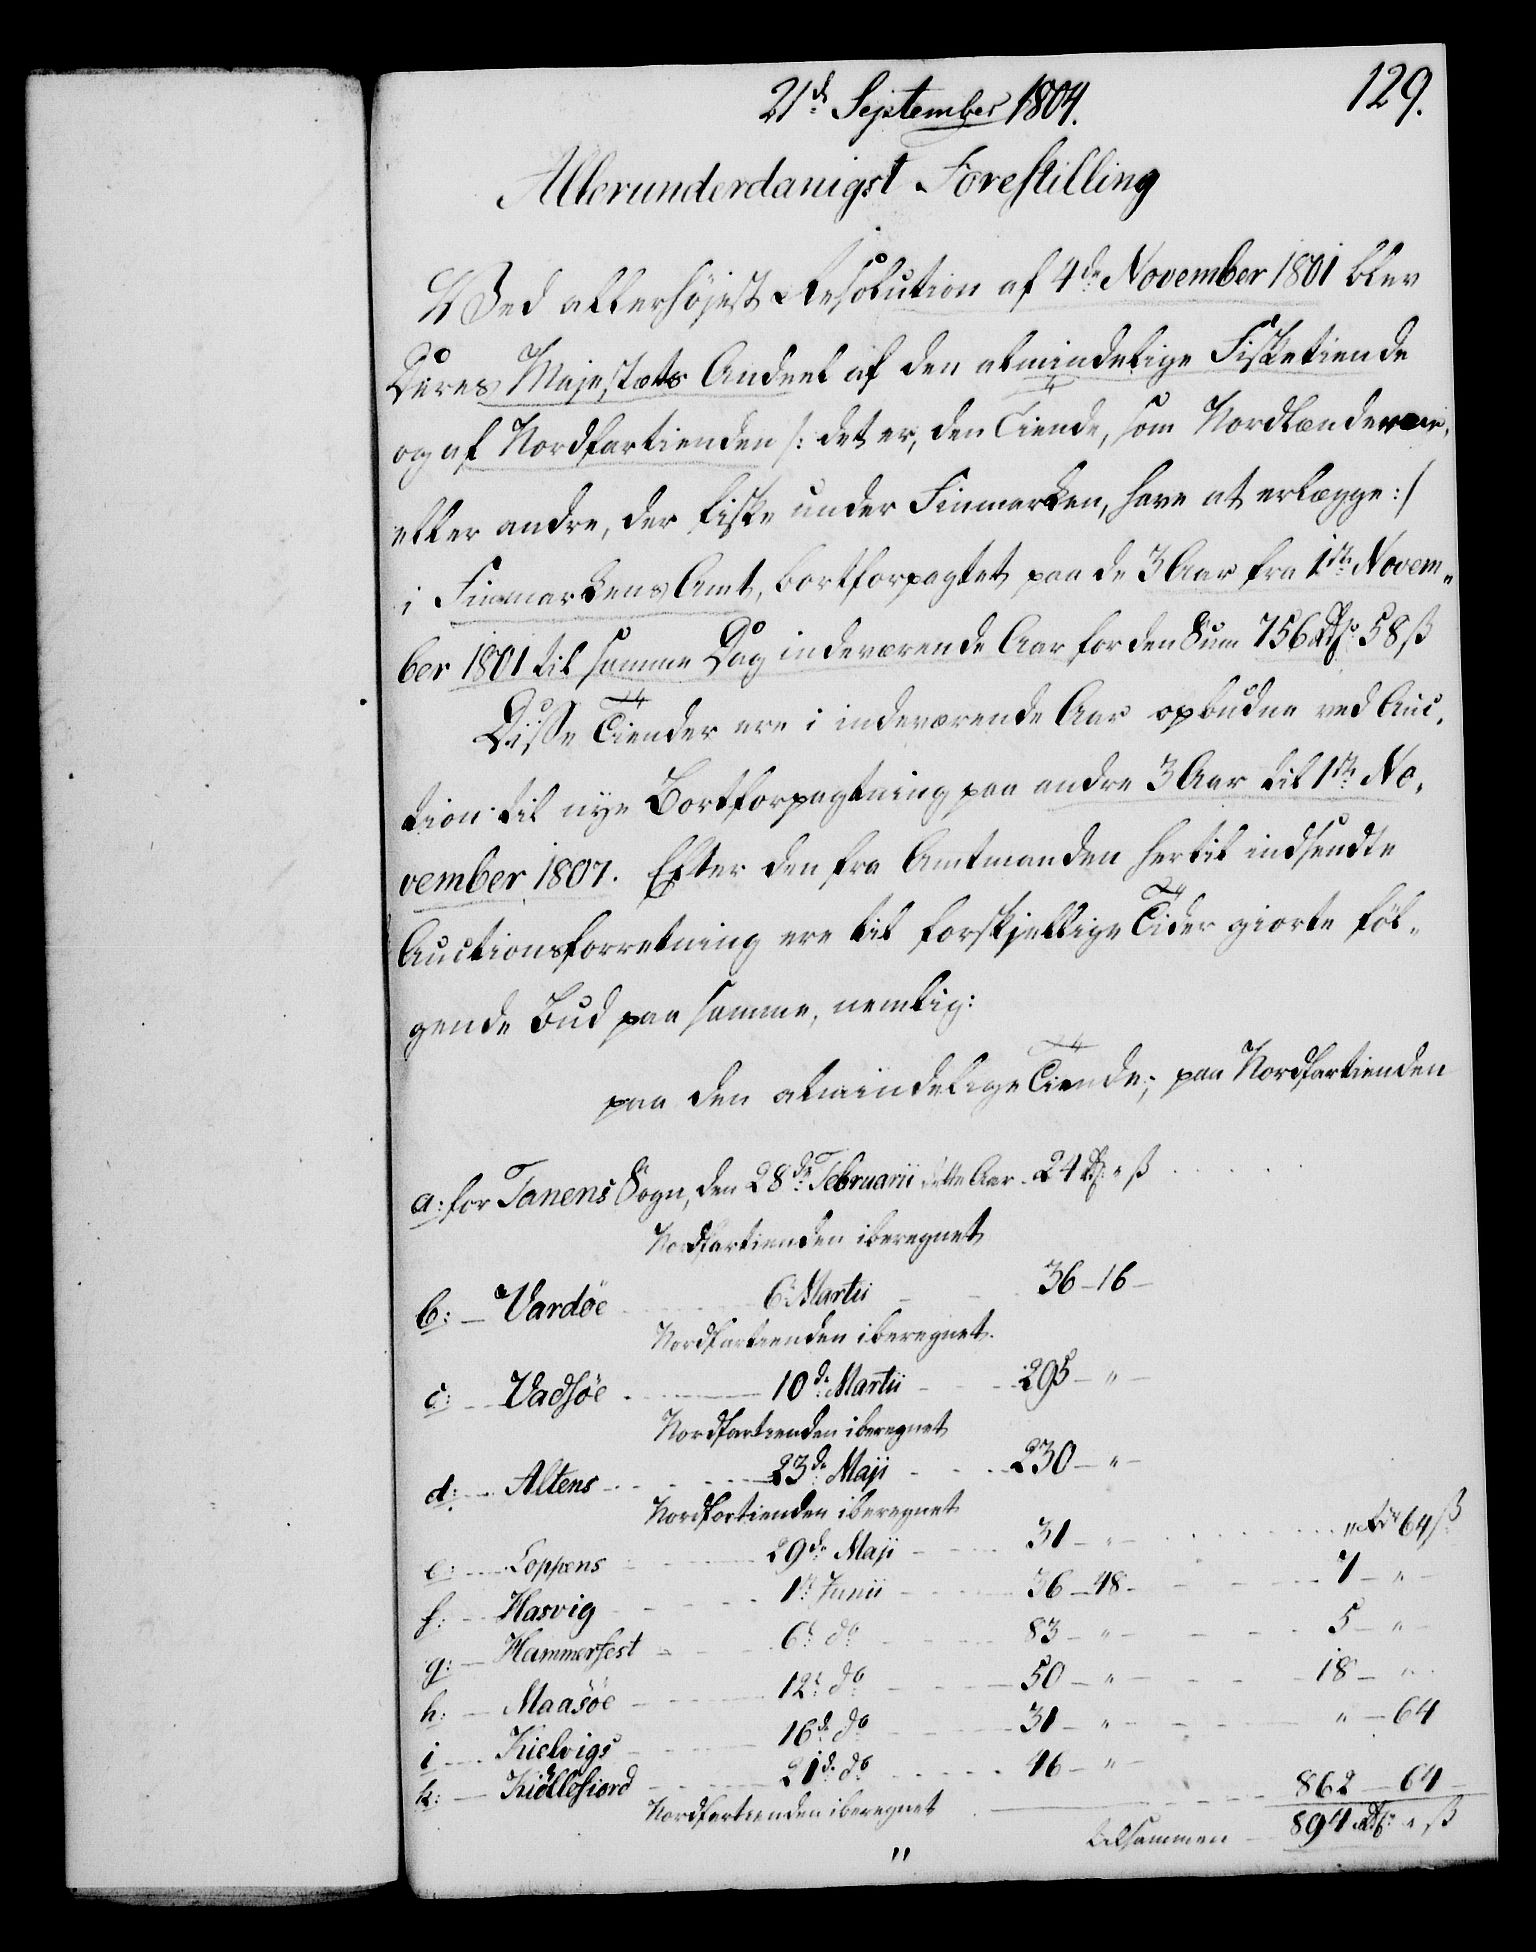 129.
21de September 1804.
Allerunderdanigst Forestilling
Ved allerhöjest Resolution af 4de November 1801 blev
Deres Majestæts Andeel af den almindelige Fisketiende
og af Nordfartienden /: det er, den Tiende, som Nordlænderne,
eller andre, der fiske under Finmarken, have at erlægge :/
i Finmarkens Amt, bortforpagtet paa de 3 Aar fra 1ste Novem-
ber 1801 til samme Dag indeværende Aar for den Sum 756 Rdr 58 ß
Disse Tiender ere i indeværende Aar opbudne ved Auc-
tion til nye Bortforpagtning paa andre 3 Aar til 1ste No-
vember 1807. Efter den fra Amtmanden hertil indsendte
Auctionsforretning ere til forskjellige Tider giorte föl-
gende Bud paa samme, nemlig:
paa den almindelige Tiende; paa Nordfartienden
a: for Tanens Sogn, den 28de Februarii dette Aar 24 Rdr " ß
Nordfartienden iberegnet
b: — Vardöe 6 Martii 36 – 16 –
Nordfartienden iberegnet.
c: — Vadsöe 10de Martii 295 – " –
Nordfartienden iberegnet
d: — Altens 23de Maji 230 – " –
Nordfartienden iberegnet
e: — Loppens 29de Maji 31 – " – " Rdr 64 ß
f: — Hasvig 1ste Junii 36 – 48 – 7 – " –
g: — Hammerfest 6te do 83 – " – 5 – " –
h: — Maasöe 12te do 50 – " – 18 – " –
i — Kielvigs 16de do 31 – " – " – 64
k: — Kiöllefiord 21de do 46 – " –
Nordfartienden iberegnet 862 – 64 –
tilsammen 894 Rdr " ß
"